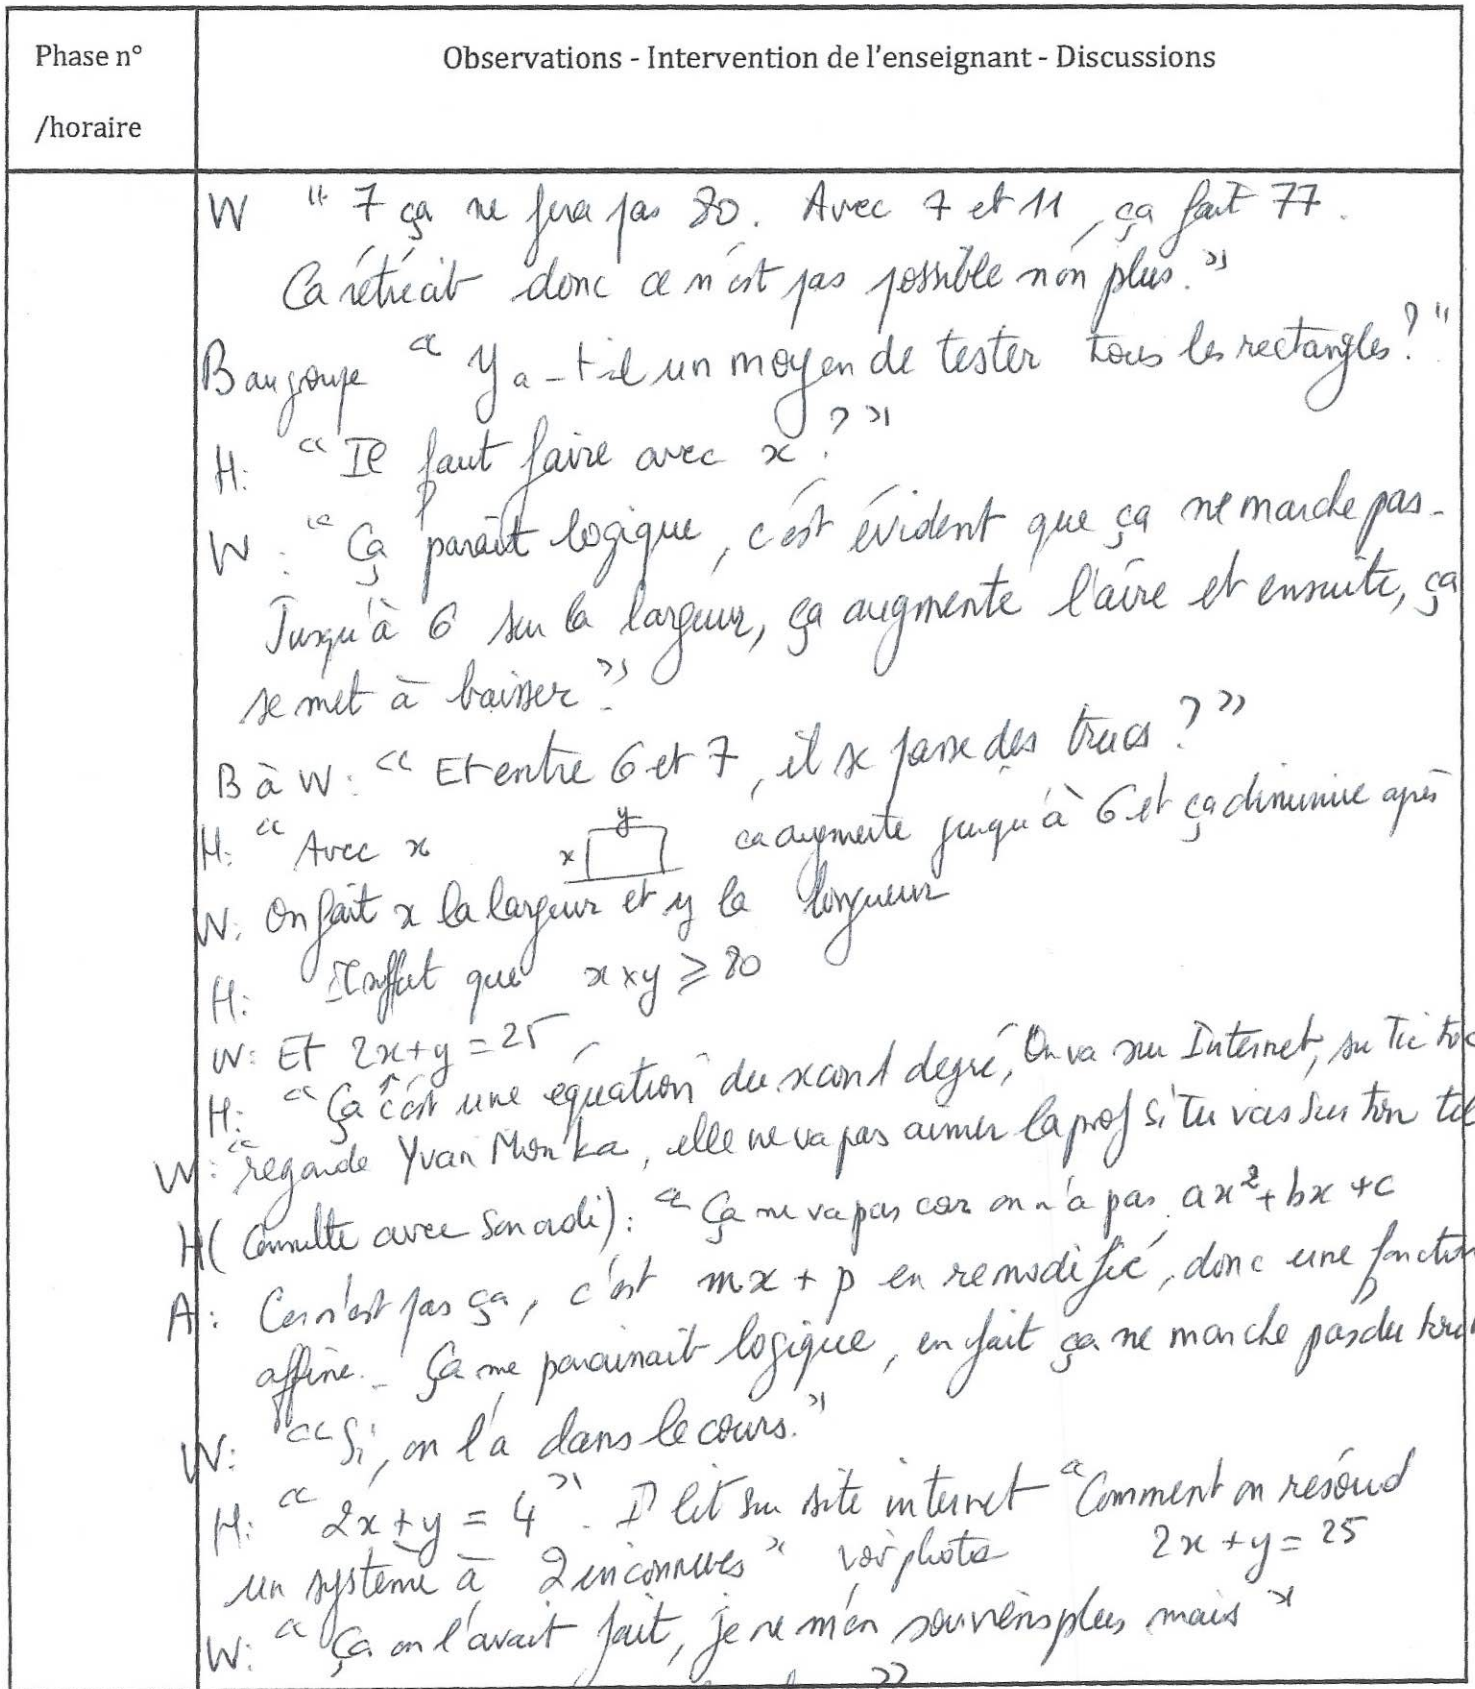 Phase n°
/horaire
Observations - Intervention de l'enseignant - Discussions
W " 7 ça ne fera pas 80. Avec 7 et 11, ça fait 77.
Ca rétrécit donc ce n'est pas possible non plus. »
B au groupe « Y a-t-il un moyen de tester tous les rectangles ? "
H: « Il faut faire avec x ? »
W : " Ça paraît logique, c'est évident que ça ne marche pas.
Jusqu'à 6 sur la largeur, ça augmente l'aire et ensuite, ça
se met à baisser »
B à W : « Et entre 6 et 7, il se passe des trucs ? »
H: « Avec x x y ca augmente jusqu'à 6 et ça diminue après
W: On fait x la largeur et y la longueur
H: Il suffit que x × y ⩾ 80
W: Et 2x+y = 25
H: « Ça c'est une équation du second degré, On va sur Internet, su Tic toc
W: "regarde Yvan Monka, elle ne va pas aimer la prof si tu vas sur ton tel
H (Consulte avec son ordi) : « Ça ne va pas car on n'a pas ax²+bx+c
A: Ce n'est pas ça, c'est mx + p en remodifié, donc une fonction
affine. Ça me paraissait logique, en fait ça ne marche pas du tout
W: « Si, on l'a dans le cours. »
H: « 2x + y = 4 ». Il lit su site internet « Comment on résoud
un système à 2 inconnues » voir photo 2x + y = 25
W: « Ça on l'avait fait, je ne m'en souviens plus mais »
»